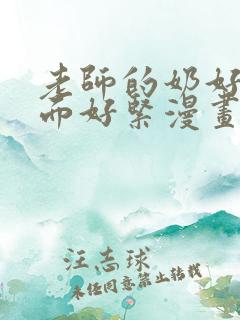 老師的奶好
而好緊漫畫
汪志球
未经同意禁止转载